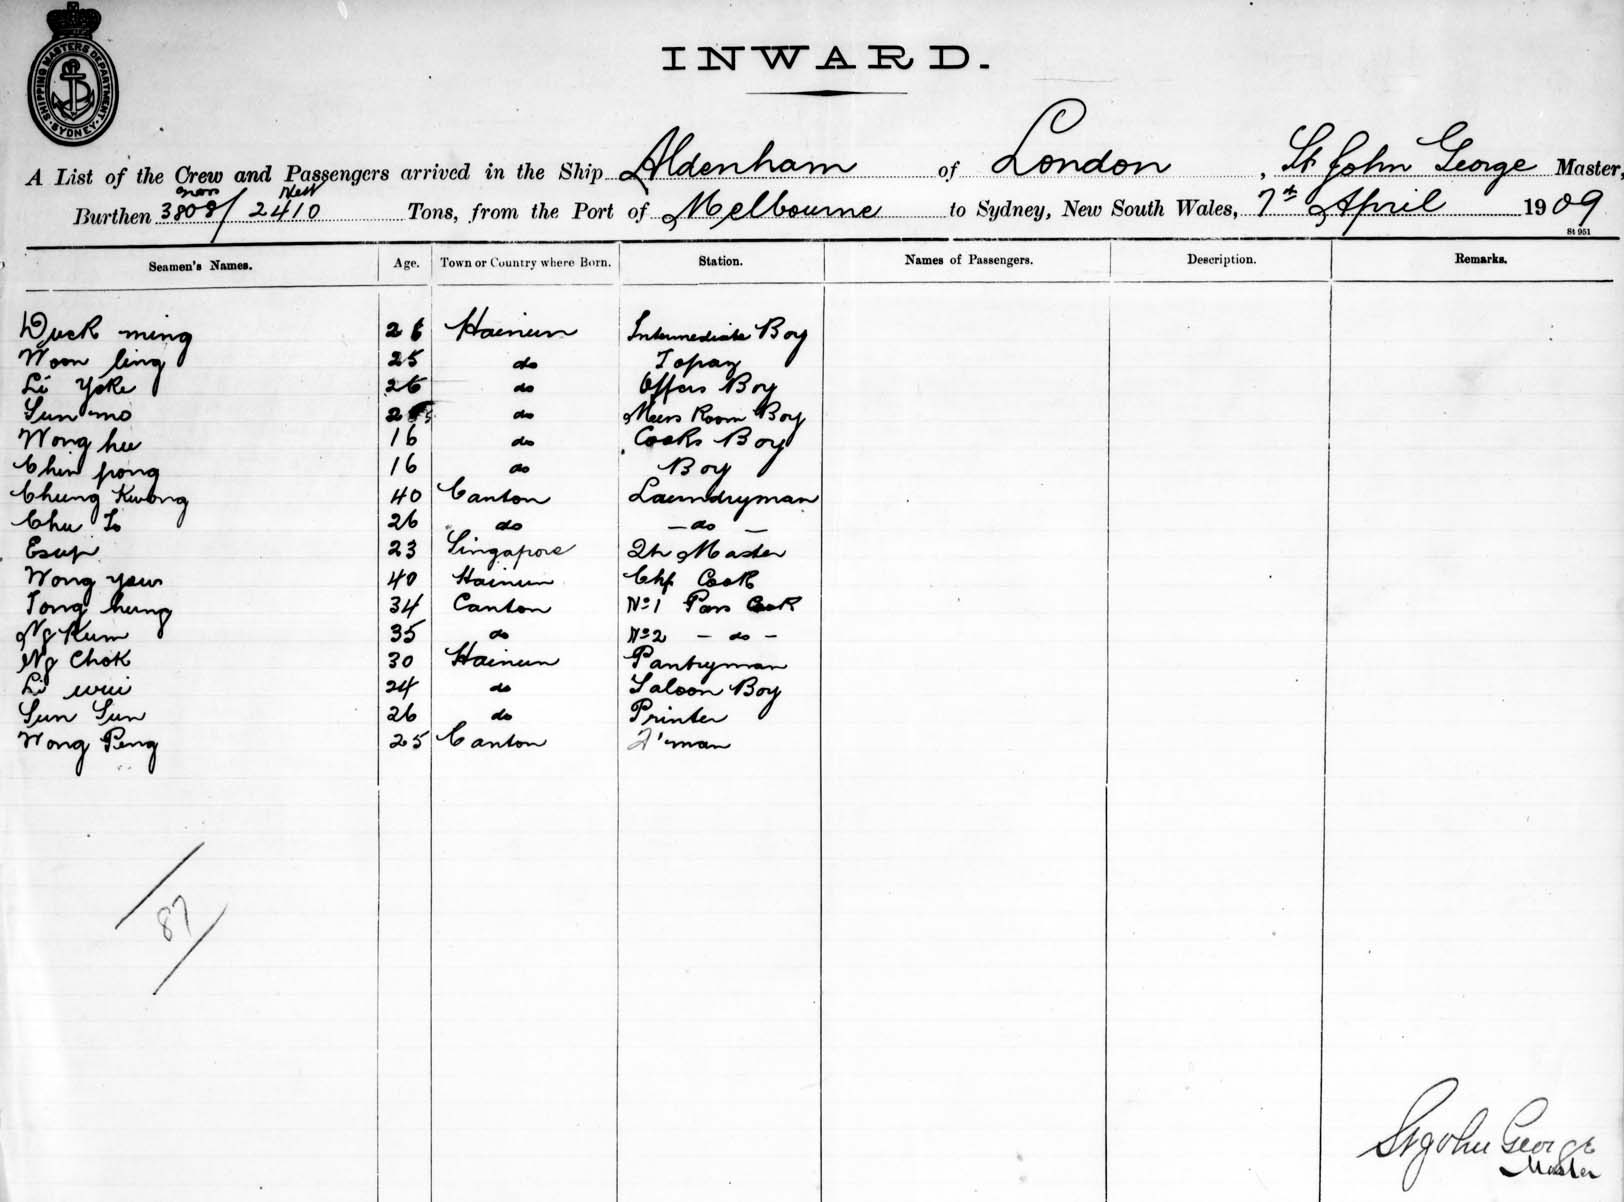 SHIPPING MASTERS DEPARTMENT. SYDNEY.
INWARD.
A List of the Crew and Passengers arrived in the Ship Aldenham of London, St John George Master,
Gross Nett
Burthen 3808/2410 Tons, from the Port of Melbourne to Sydney, New South Wales, 7th April 1909
St 951
Seamen's Names. Age. Town or Country where Born. Station. Names of Passengers. Description. Remarks.
Duck ming 26 Hainun Intermediate Boy
Woon ling 25 do Topay
Li Yoke 26 do Offers Boy
Sun mo do Mess Room Boy
Wong hu 16 do Cooks Boy
Chin pong 16 do Boy
Chung Kwong 40 Canton Laundryman
Chu Lo 26 do - do -
Esup 23 Singapore Qr Master
Wong yau 40 Hainun Chf Cook
Tong hung 34 Canton No 1 Pass Cook
Ng Kum 35 do No 2 - do -
Ng Chok 30 Hainun Pantryman
Li wui 24 do Saloon Boy
Sun Sun 26 do Printer
Wong Peng 25 Canton F'man
87
St John George
Master